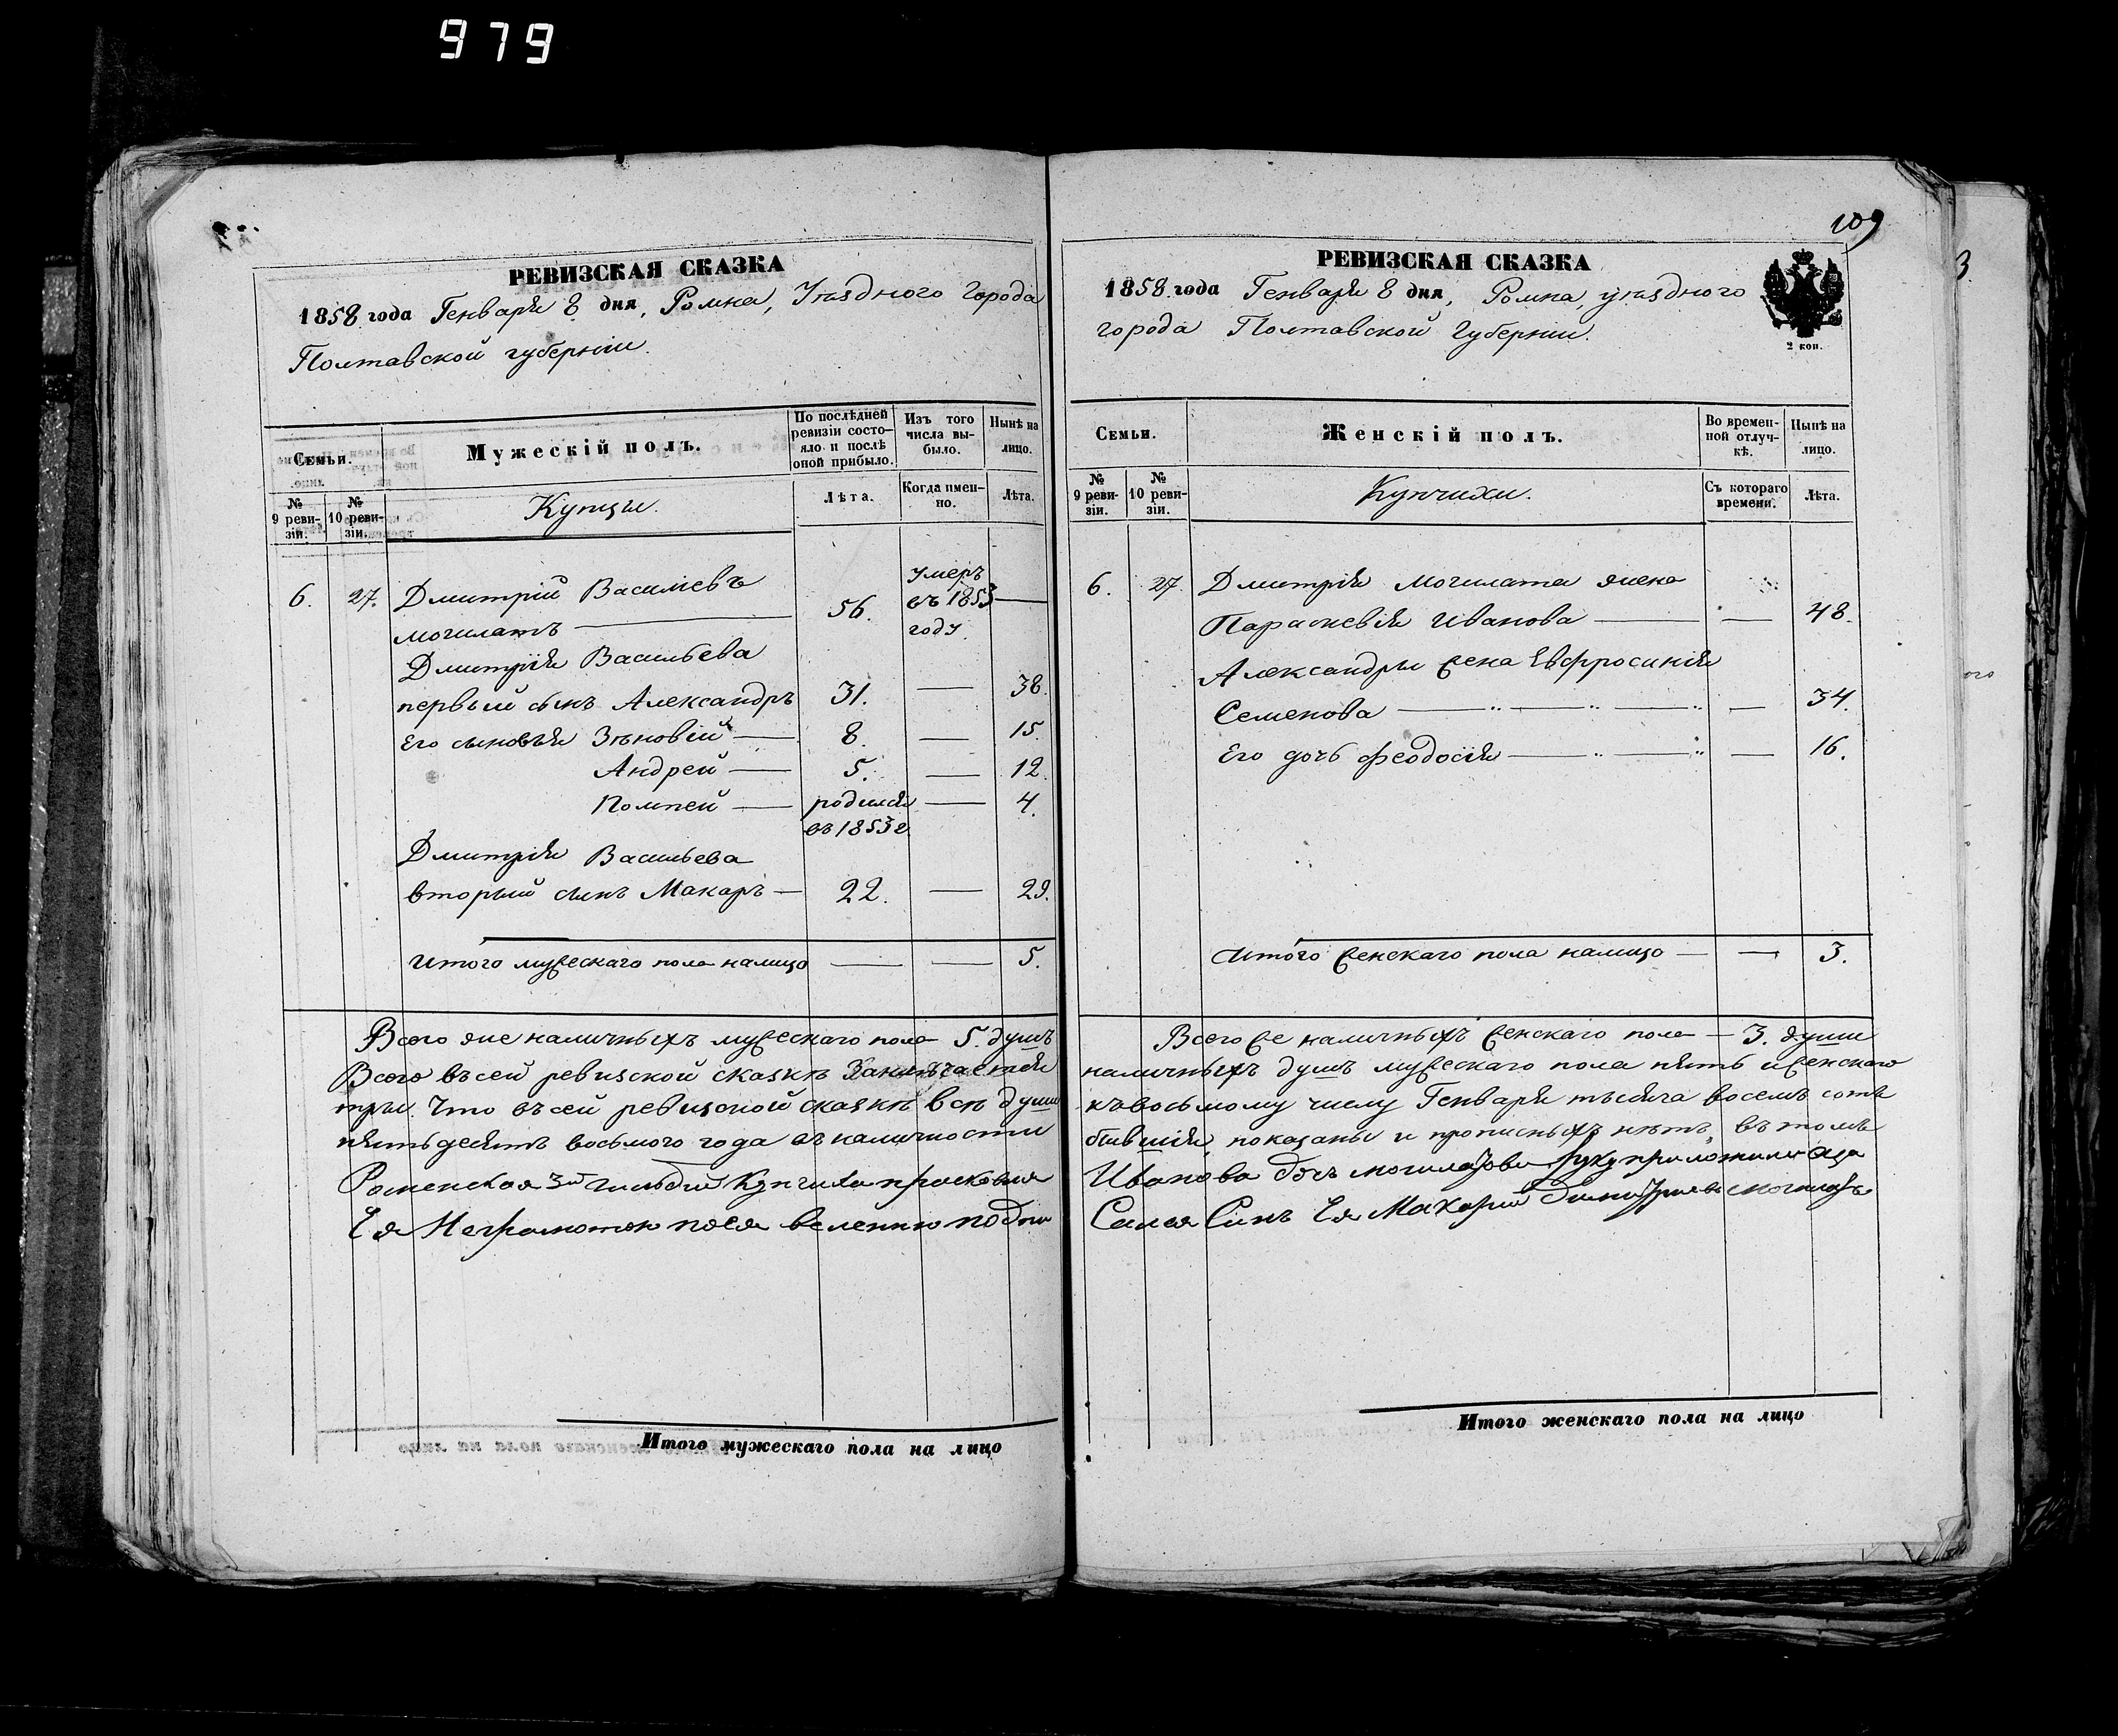 979
РЕВИЗСКАЯ СКАЗКА
1858 года Генваря 8 дня, Ромна, Уѣздного Города
Полтавской губерніи.
Семьи.
Мужескій полъ.
По послѣдней ревизіи состояло и послѣ оной прибыло.
Изъ того числа выбыло.
Нынѣ на лицо.
№ 9 ревизіи.
№ 10 ревизіи.
Купцы.
Лѣта.
Когда именно.
Лѣта.
6. 27. Дмитрій Василіевъ
могилатъ 56. умеръ въ 1853 году
Дмитрія Васильева
первый сынъ Александръ 31. 38.
Его сыновья Зѣновій 8. 15.
Андрей 5. 12.
Помпей родился въ 1853 г. 4.
Дмитрія Васильева
вторый сынъ Макаръ 22. 29.
Итого мужескаго пола налицо 5.
Всего же наличныхъ мужескаго пола 5. душъ
Всего въ сей ревизской сказкѣ Заключается
три. Что въ сей ревизской сказкѣ всѣ души
пятьдесятъ восьмого года въ наличности
Роменская 3й гильдии Купчиха прасковия
Ея Неграмотной поея велению подпи
Итого мужескаго пола на лицо
109
РЕВИЗСКАЯ СКАЗКА
1858 года Генваря 8 дня, Ромна, уѣздного
города Полтавской Губерніи.
2 коп.
Семьи.
Женскій полъ.
Во временной отлучкѣ.
Нынѣ на лицо.
№ 9 ревизіи.
№ 10 ревизіи.
Купчихи.
Съ котораго времени.
Лѣта.
6. 27. Дмитрія могилата жена
Параскевія Иванова 48.
Александры жена Евфросинія
Семенова 34.
Его дочь Феодосія 16.
Итого женскаго пола налицо 3.
Всего же наличныхъ женскаго пола — 3. души
наличныхъ душъ мужескаго пола пять и женскаго
къ восьмому числу Генваря тысяча восемь сотъ
бывшія, показаны и прописныхъ нѣтъ, въ томъ
Иванова дочь могилатова руку приложила аза
Сался Синъ Ея Макарий Димитриевъ могилатъ
Итого женскаго пола на лицо
3